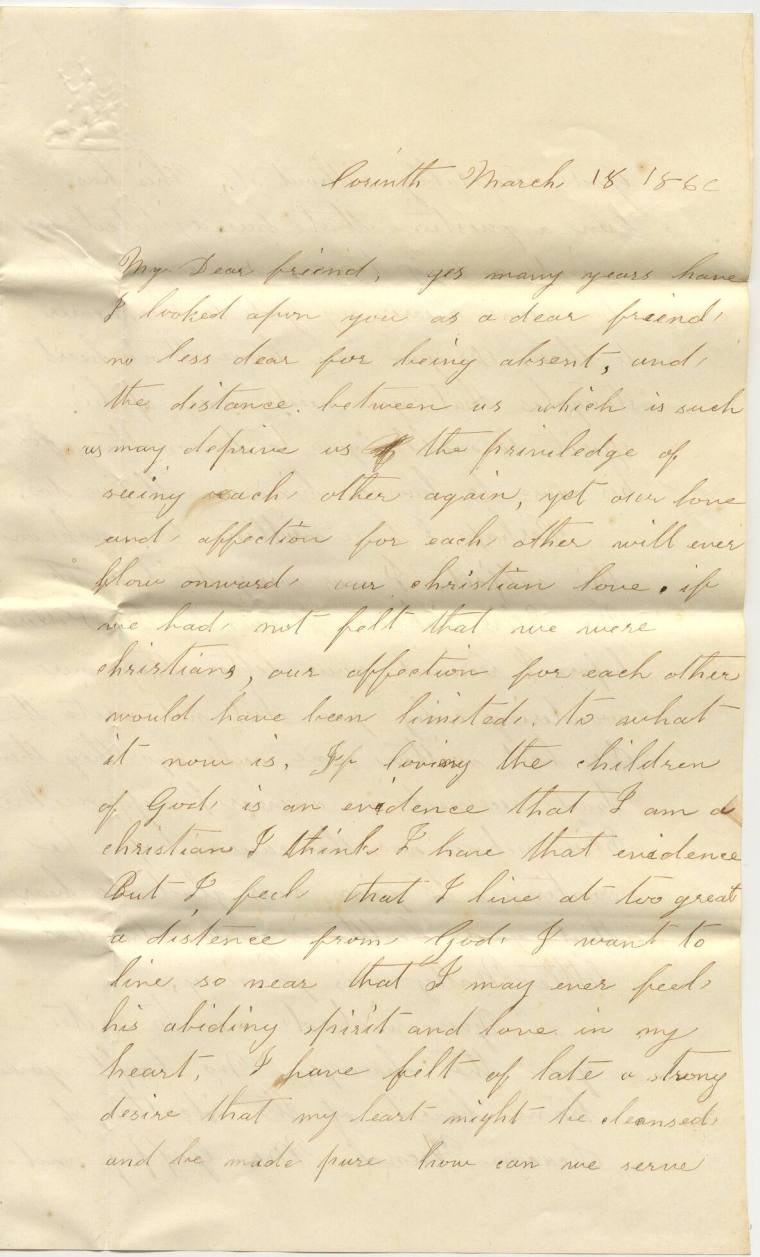 Corinth March 18 186
My Dear friend, yes many years have
I looked apon you as a dear friend
no less dear for being absent, and
the distance. between us which is such
as may deprive us of the priviledge of
seeing each other again, yet our love
and affection for each other will ever
flow onward our christian love. if
we had not felt that we were
christians, our affection for each other
would have been limited. to what
it now is. If loving the children
of God is an evidence that I am a
christian I think I have that evidence
But I feel that I live at too great
a distence from God I want to
live so near that I may ever feel
his abiding spirit and love in my
heart. I have felt of late a strong
desire that my heart might be cleansed
and be made pure how can we serve